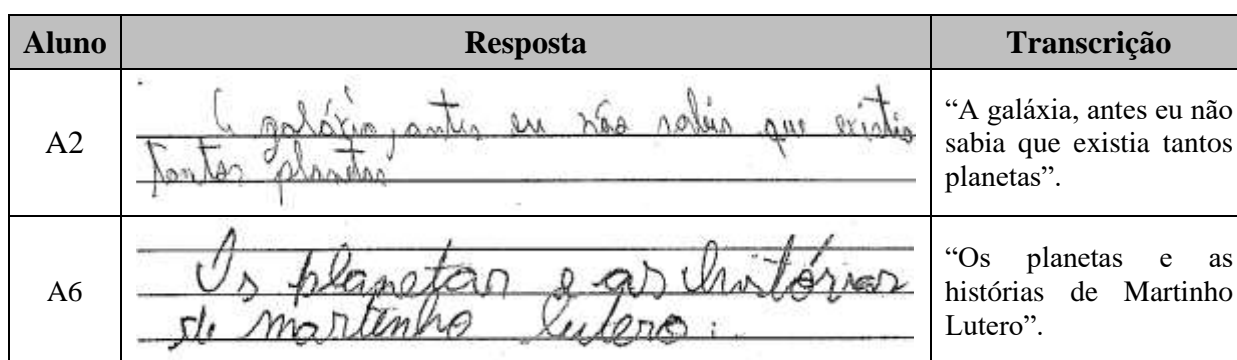 Aluno Resposta Transcrição
A2
A galáxia, antes eu não sabia que existia
tantos planetas
“A galáxia, antes eu não
sabia que existia tantos
planetas”.
A6
Os planetas e as histórias
de martinho lutero.
“Os planetas e as
histórias de Martinho
Lutero”.